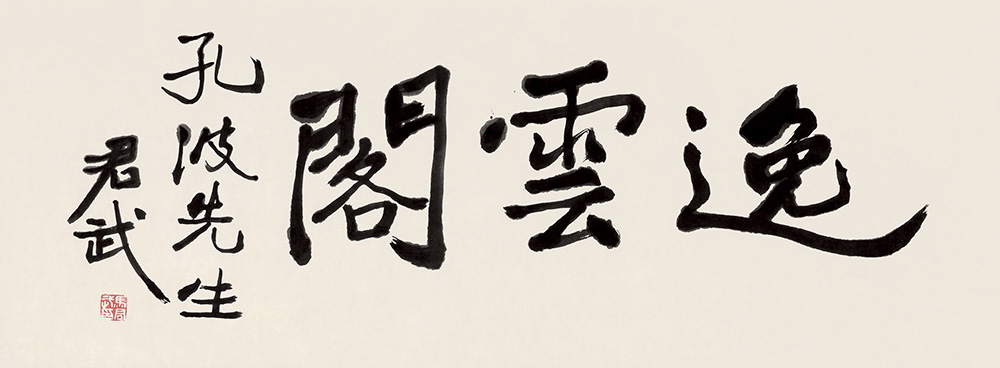 逸雲閣
孔波先生
君武